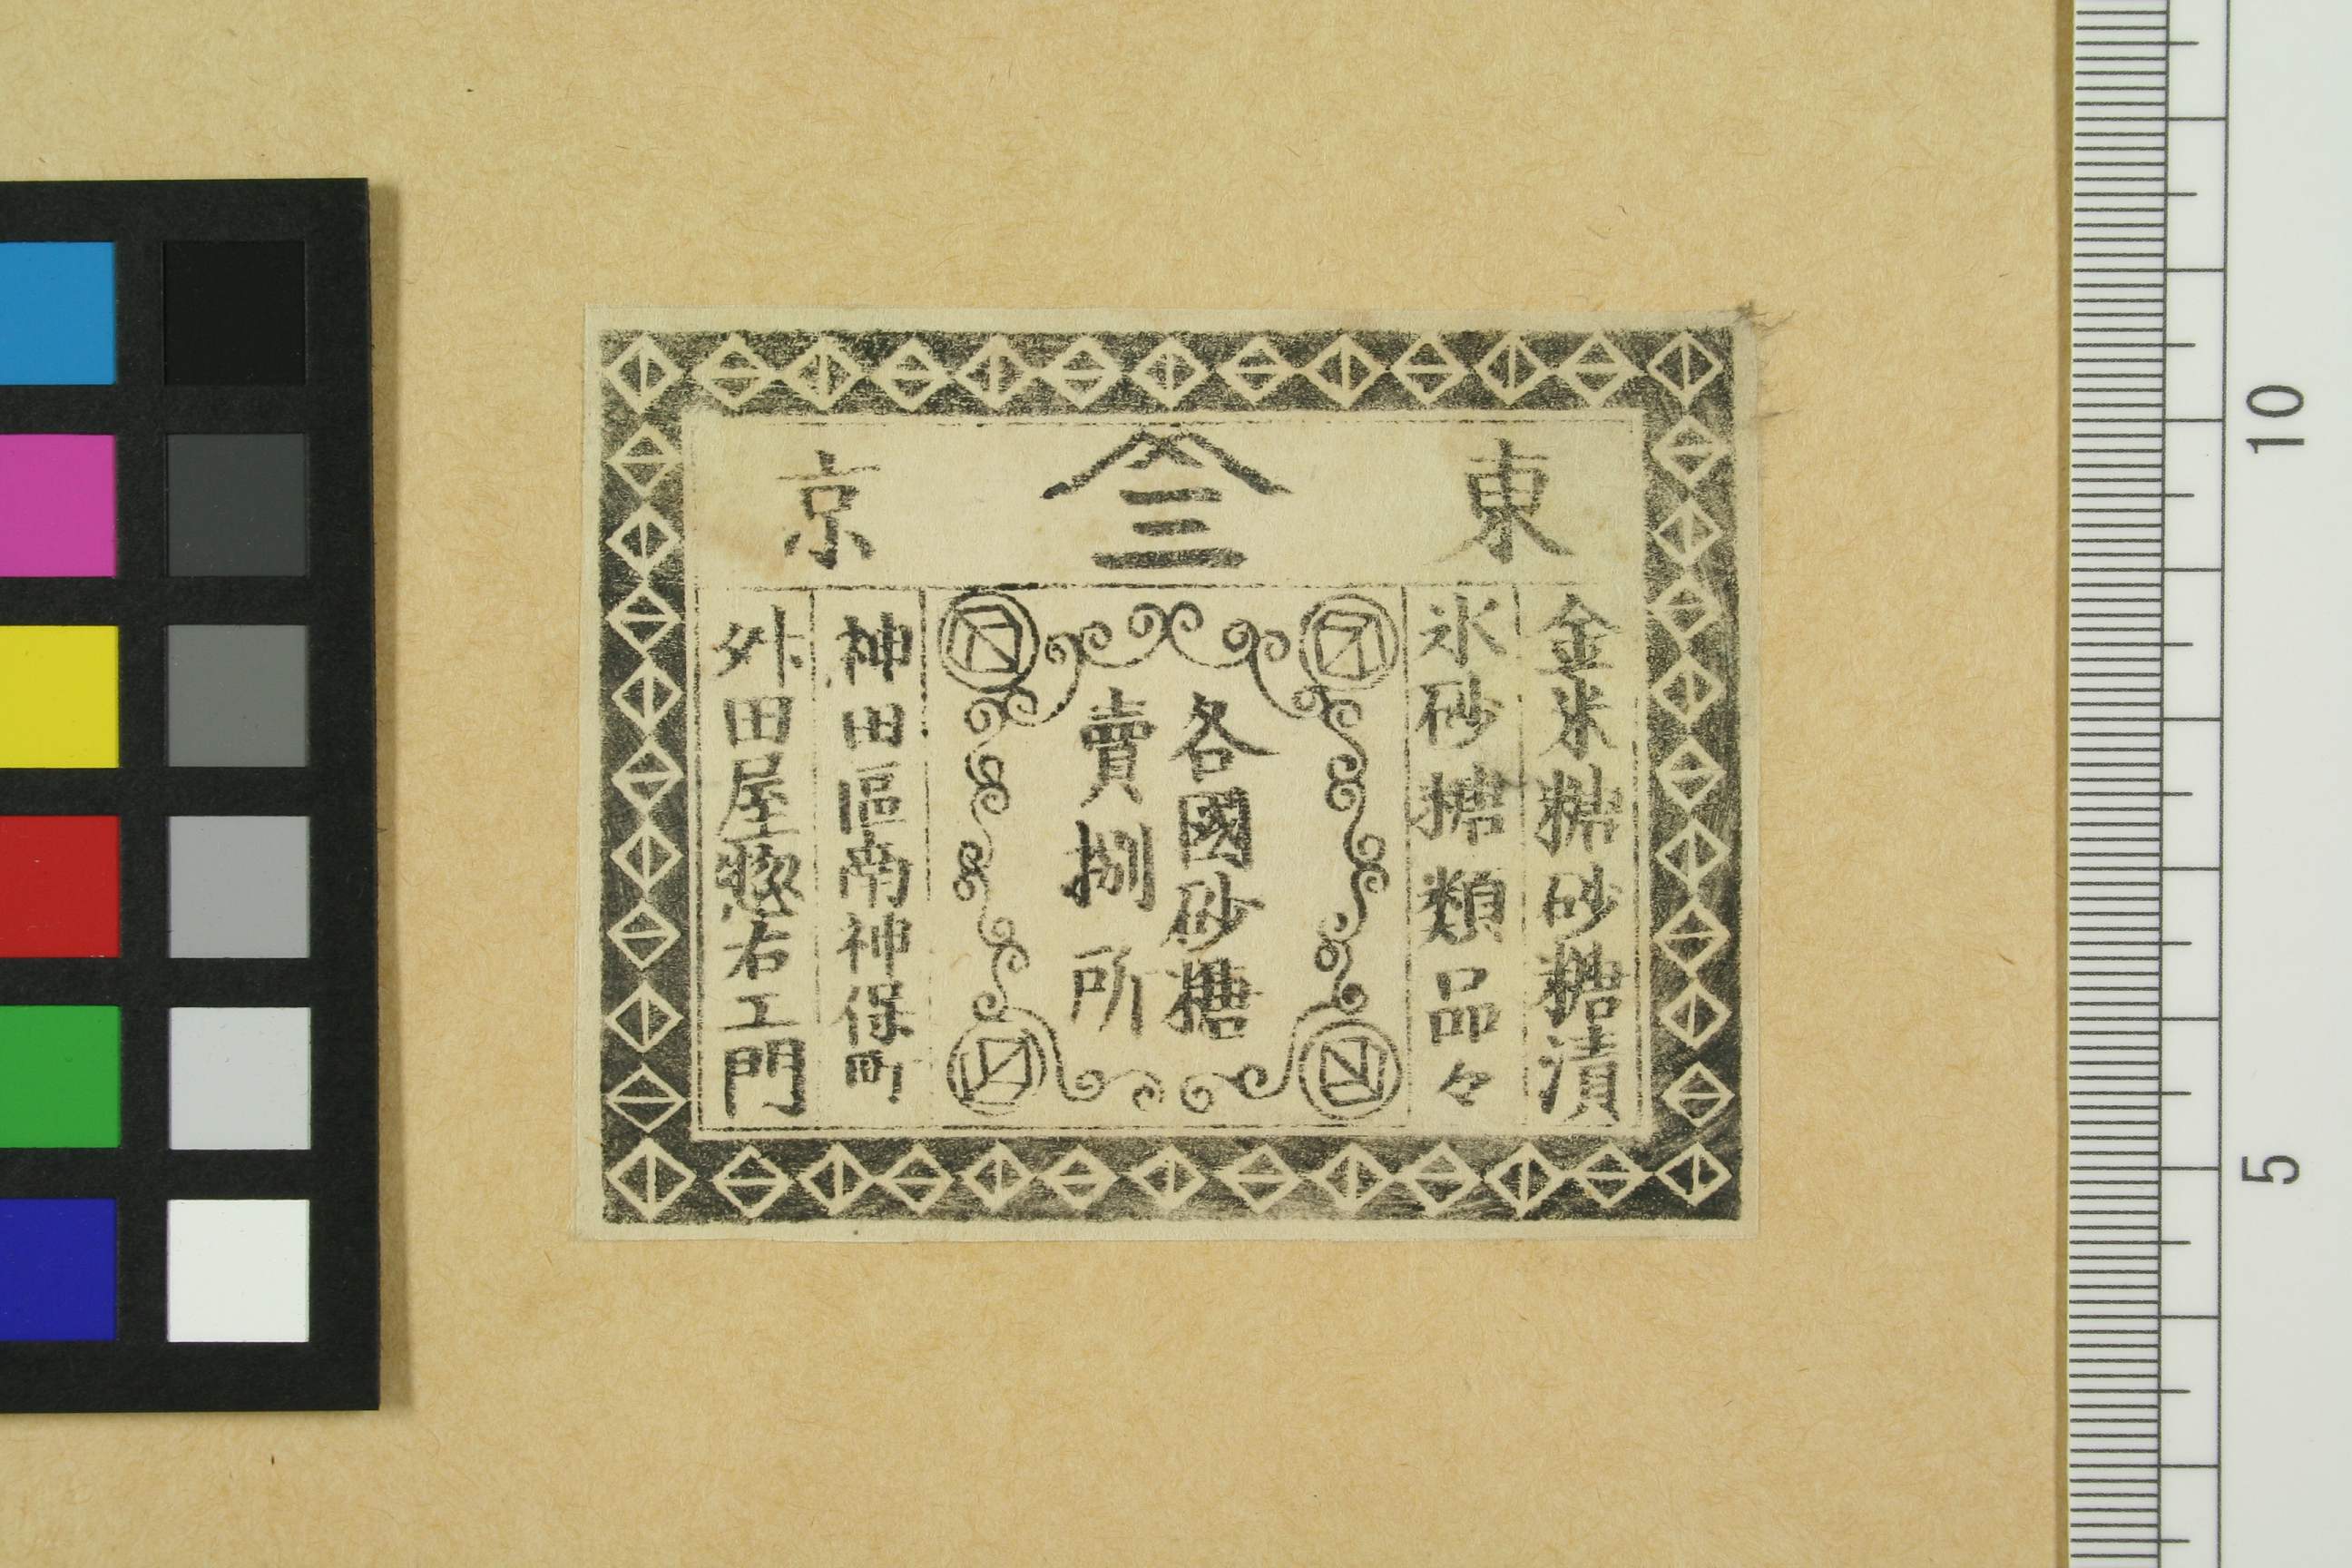 東 三 京
金米糖砂糖漬
氷砂糖類品々
各國砂糖
賣捌所
神田區南神保町
外田屋惣右エ門
10
5